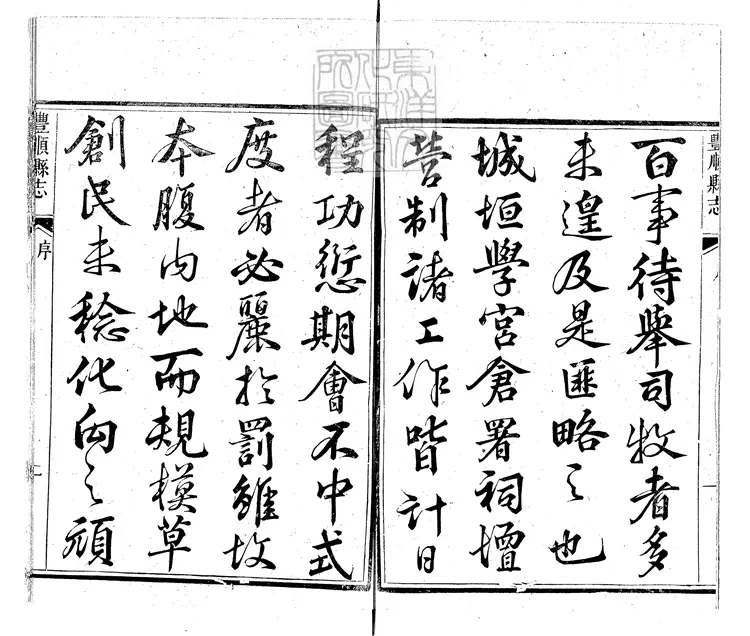 豐順縣志
百事待舉司牧者多
未遑及是匪略之也
城垣學宮倉署祠壇
營制諸工作皆計日
程功愆期會不中式
度者必麗於罰雖故
本腹內地而規模草
創民未稔化向之頑
豐順縣志
序